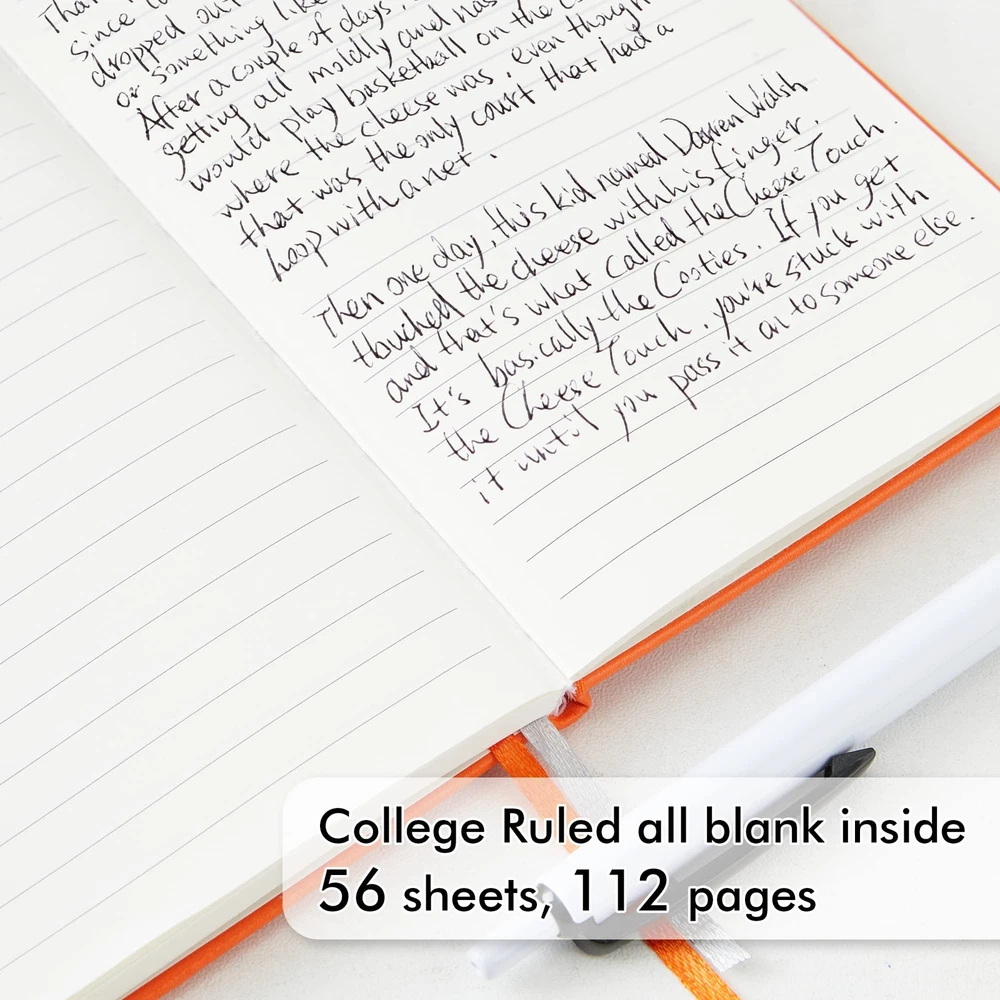 That
since
dropped out
or something like
After a couple of days,
getting all moldy and nas
would play basketball on the c
where the cheese was, even though
that was the only court that had a
hoop with a net.
Then one day, this kid named Darren Walsh
touched the cheese with his finger,
and that's what called the Cheese Touch.
It's basically the Cooties. If you get
the Cheese Touch, you're stuck with
it until you pass it on to someone else.
College Ruled all blank inside
56 sheets, 112 pages